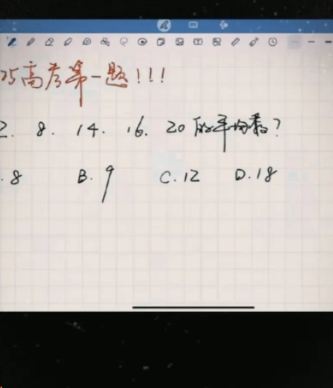 25高考第一题!!!
2. 8. 14. 16. 20的平均数?
.8 B.9 C.12 D.18